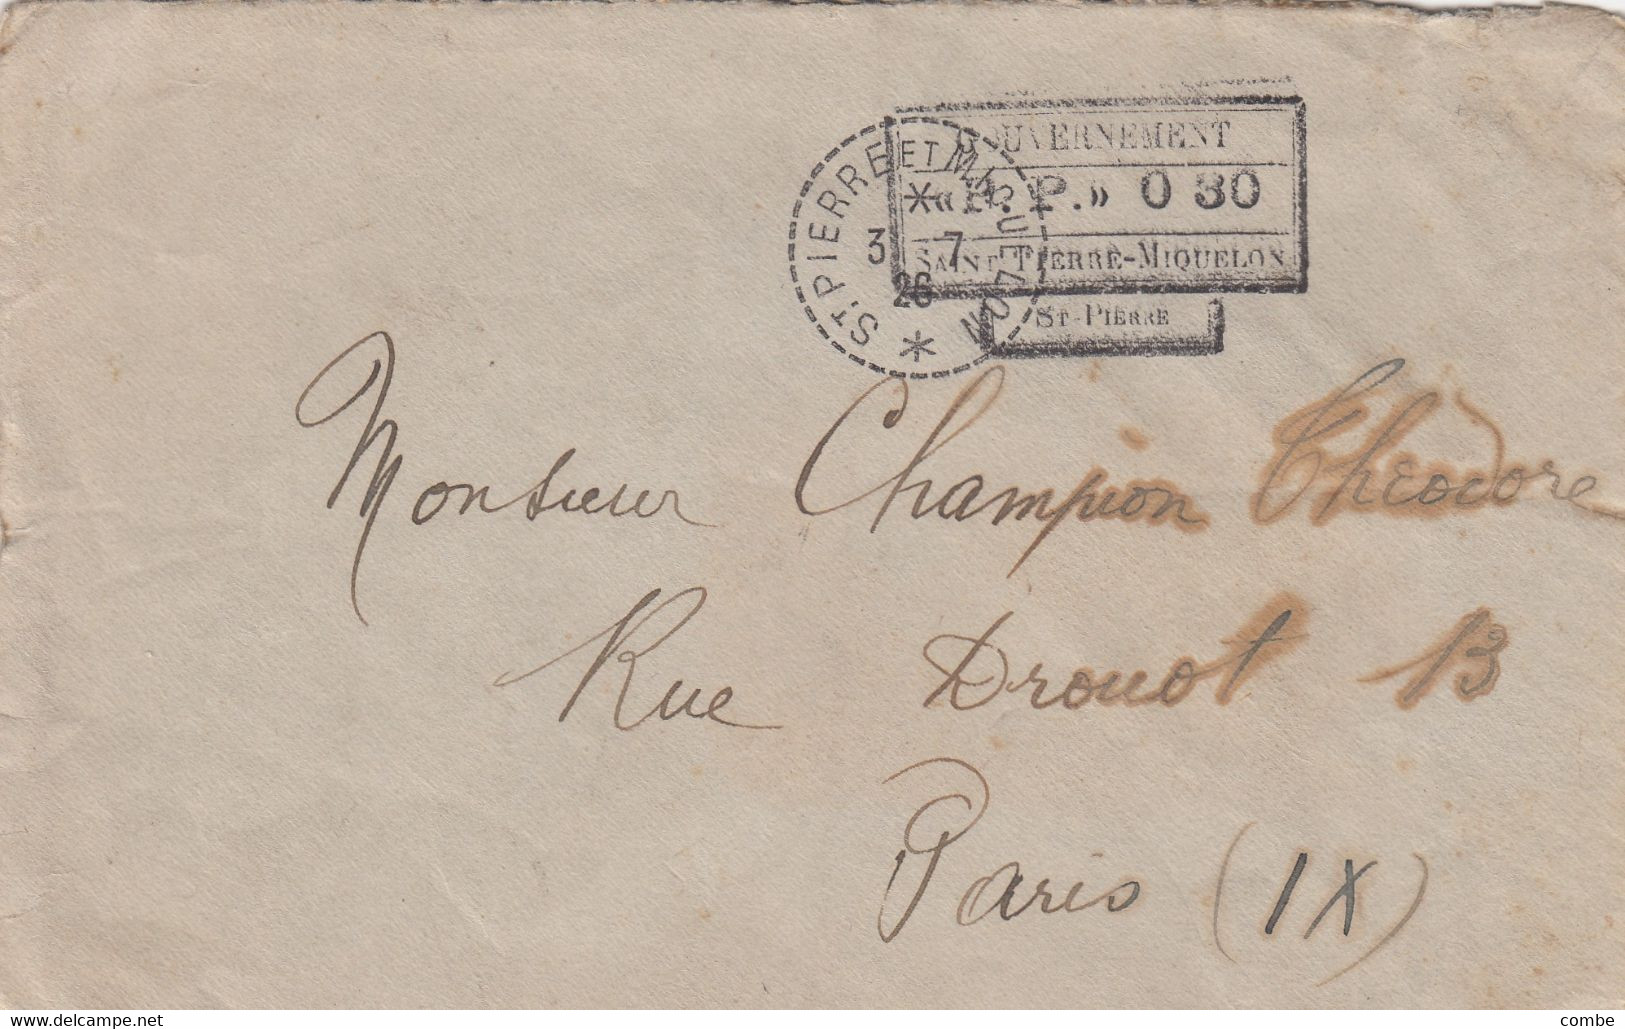 GOUVERNEMENT
« P. P. » 0 30
SAINT-PIERRE-MIQUELON
ST-PIERRE
ST. PIERRE ET MIQUELON
3 7
26
Monsieur Champion Théodore
Rue Drouot 13
Paris (IX)
www.delcampe.net
combe